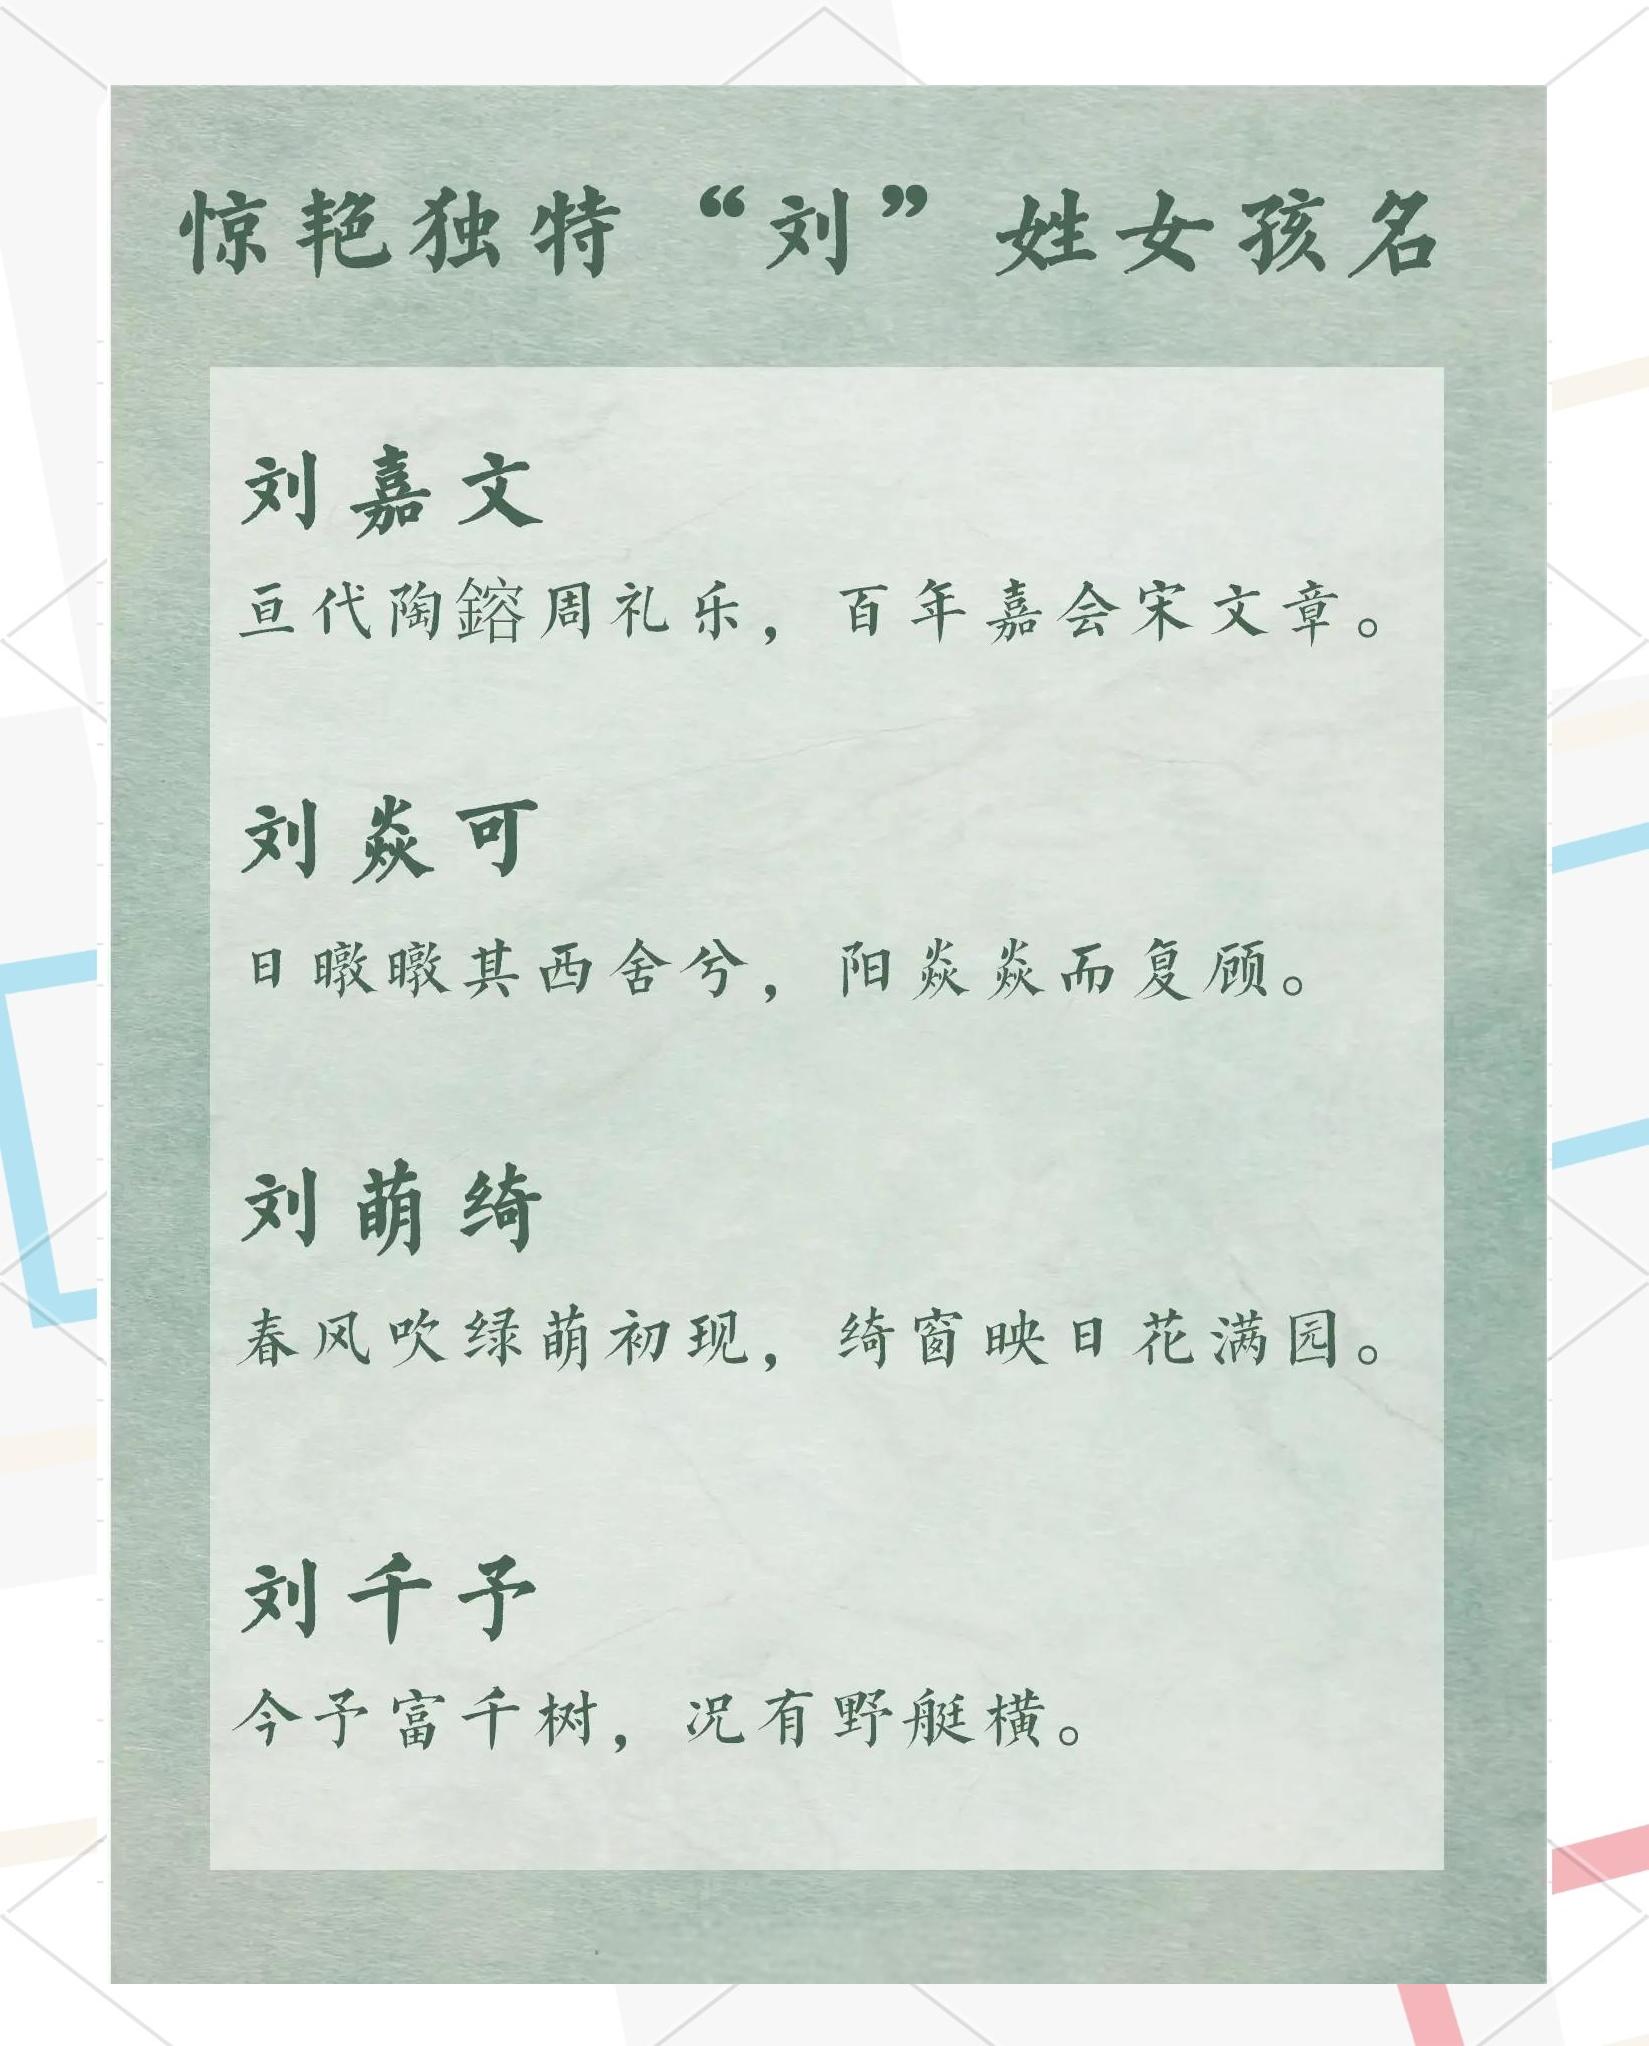 惊艳独特“刘”姓女孩名
刘嘉文
亘代陶鎔周礼乐，百年嘉会宋文章。
刘焱可
日暾暾其西舍兮，阳焱焱而复顾。
刘萌绮
春风吹绿萌初现，绮窗映日花满园。
刘千予
今予富千树，况有野艇横。